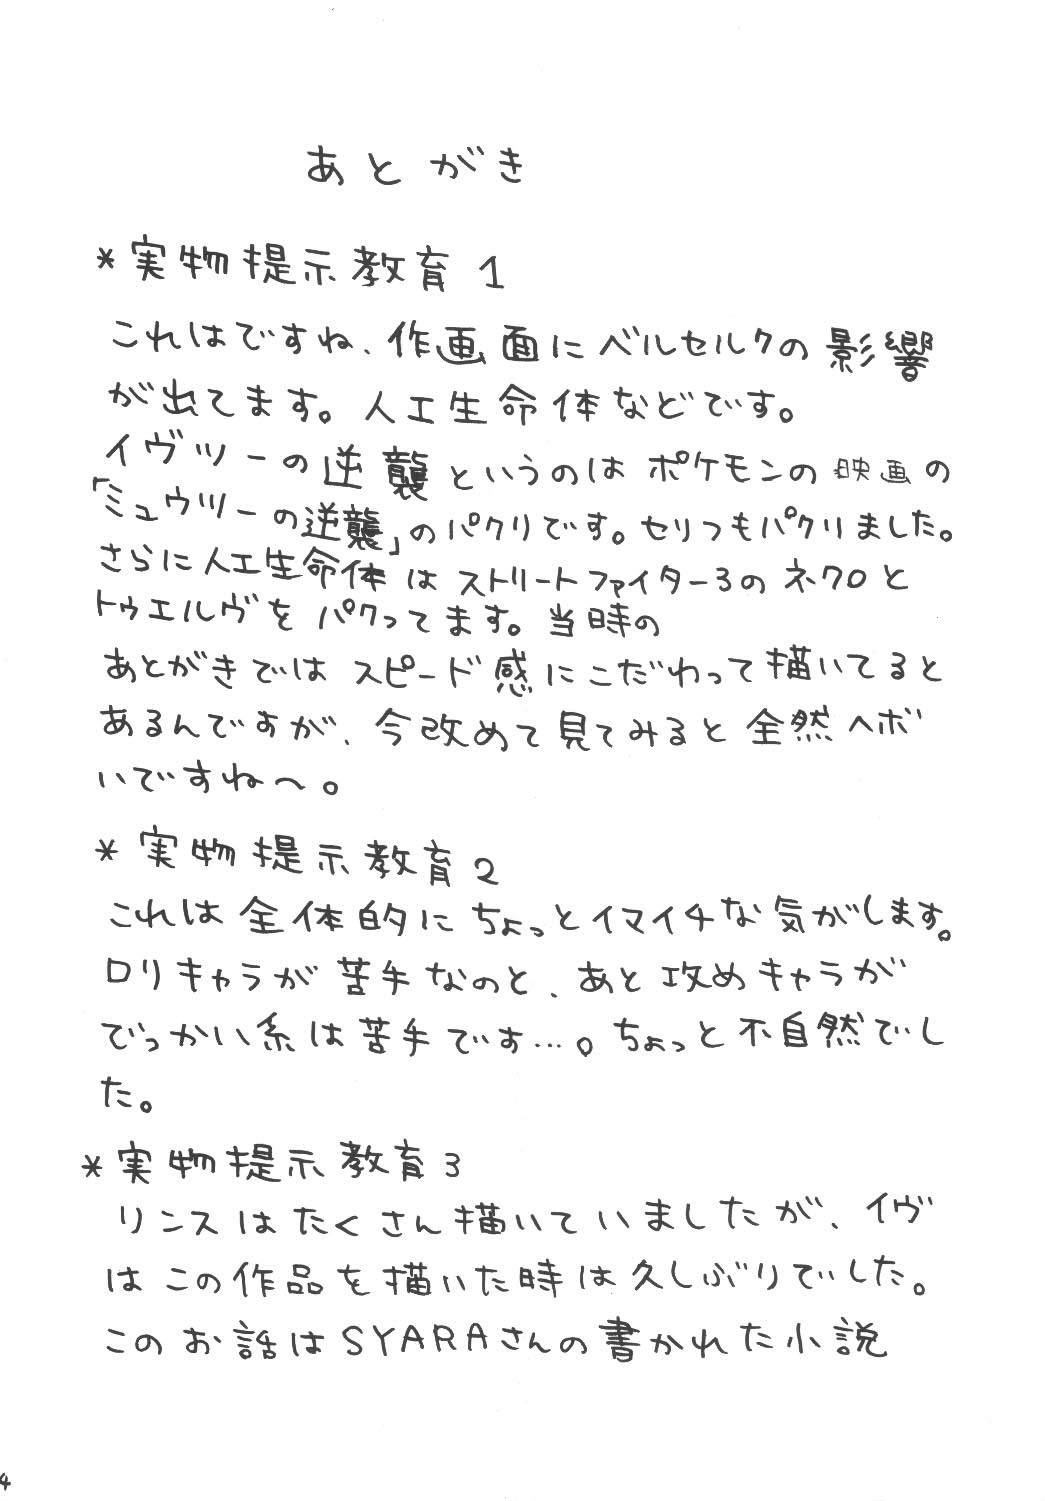 あとがき
*実物提示教育1
これはですね、作画面にベルセルクの影響
が出てます。人工生命体などです。
イヴツーの逆襲というのはポケモンの映画の
「ミュウツーの逆襲」のパクリです。セリフもパクリました。
さらに人工生命体はストリートファイター3のネクロと
トゥエルヴをパクってます。当時の
あとがきではスピード感にこだわって描いてると
あるんですが、今改めて見てみると全然ヘボ
いですね～。
*実物提示教育2
これは全体的にちょっとイマイチな気がします。
ロリキャラが苦手なのと、あと攻めキャラが
でっかい系は苦手です…。ちょっと不自然でし
た。
*実物提示教育3
リンスはたくさん描いていましたが、イヴ
はこの作品を描いた時は久しぶりでした。
このお話はSYARAさんの書かれた小説
4